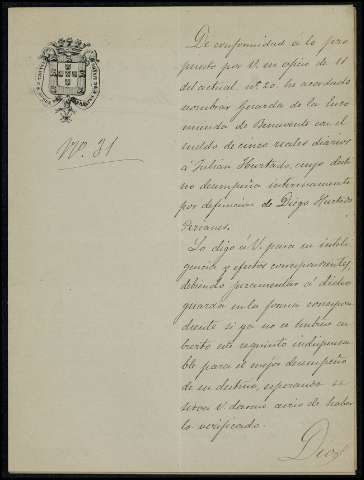 Nº. 31
De conformidad á lo pro
puesto por V. en oficio de 11
del actual nº. 20. he acordado
nombrar Guarda de la
de Benavente con el
sueldo de cinco reales diarios
á Julian Hurtado, cuyo
desempeña interinamente
por defuncion de Diego Hurtado
Lo digo á V. para su inteli
gencia y efectos correspondientes,
debiendo juramentar á dicho
guarda en la forma correspon
diente si ya no se hubiere cu
bierto este requisito indispensa
ble para el mejor desempeño
de su destino, esperando se
servirá V. darme aviso de haber
lo verificado.
Dios